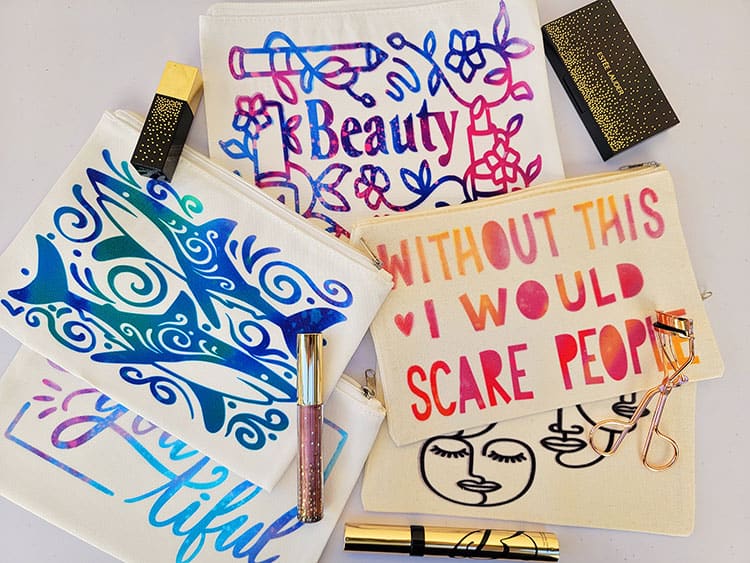 Beauty
ESTĒE LAUDER
WITHOUT THIS
I WOULD
SCARE PEOPLE
you
tiful